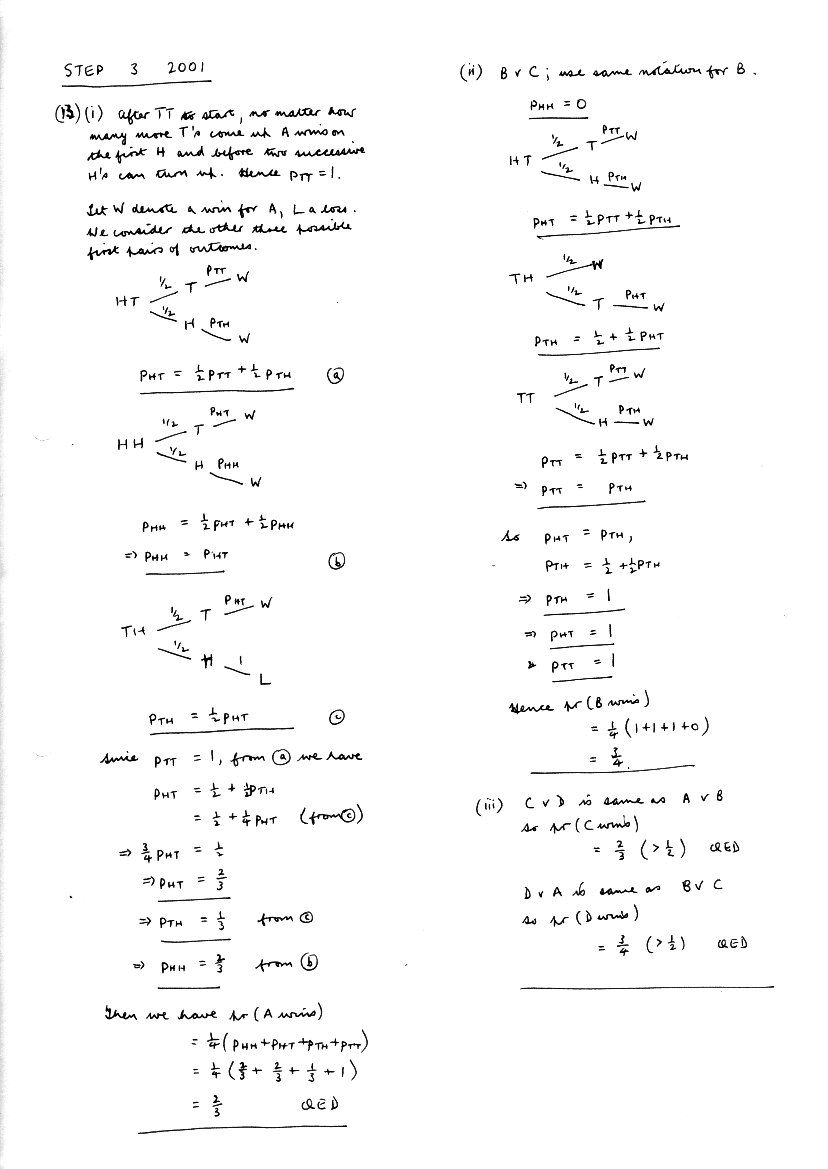 STEP 3 2001
(13) (i) After TT to start, no matter how
many more T's come up A wins on
the first H and before two successive
H's can turn up. Hence p_TT = 1.
Let W denote a win for A, L a loss.
We consider the other three possible
first pairs of outcomes.
HT
1/2 T p_TT W
1/2 H p_TH W
p_HT = 1/2 p_TT + 1/2 p_TH (a)
HH
1/2 T p_HT W
1/2 H p_HH W
p_HH = 1/2 p_HT + 1/2 p_HH
=> p_HH = p_HT (b)
TH
1/2 T p_HT W
1/2 H 1 L
p_TH = 1/2 p_HT (c)
Since p_TT = 1, from (a) we have
p_HT = 1/2 + 1/2 p_TH
= 1/2 + 1/4 p_HT (from (c))
=> 3/4 p_HT = 1/2
=> p_HT = 2/3
=> p_TH = 1/3 from (c)
=> p_HH = 2/3 from (b)
Then we have pr (A wins)
= 1/4 (p_HH + p_HT + p_TH + p_TT)
= 1/4 (2/3 + 2/3 + 1/3 + 1)
= 2/3 QED
(ii) B v C ; use same notation for B.
p_HH = 0
HT
1/2 T p_TT W
1/2 H p_TH W
p_HT = 1/2 p_TT + 1/2 p_TH
TH
1/2 W
1/2 T p_HT W
p_TH = 1/2 + 1/2 p_HT
TT
1/2 T p_TT W
1/2 H p_TH W
p_TT = 1/2 p_TT + 1/2 p_TH
=> p_TT = p_TH
So p_HT = p_TH,
p_TH = 1/2 + 1/2 p_TH
=> p_TH = 1
=> p_HT = 1
& p_TT = 1
Hence pr (B wins)
= 1/4 (1+1+1+0)
= 3/4.
(iii) C v D is same as A v B
so pr (C wins)
= 2/3 (> 1/2) QED
D v A is same as B v C
so pr (D wins)
= 3/4 (> 1/2) QED